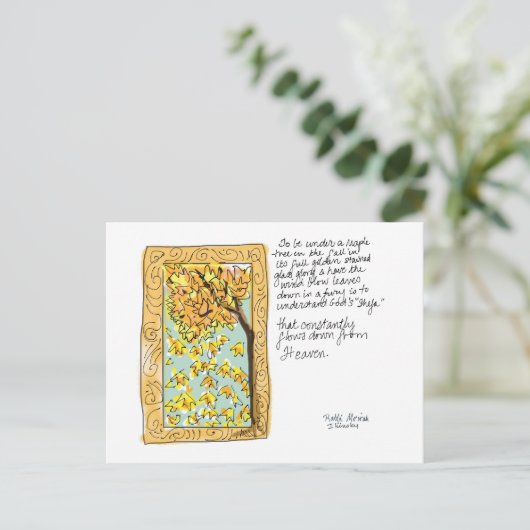 To be under a Maple
tree in the fall in
its full golden stained
glass glory & have the
wind blow leaves
down in a fury is to
understand God's "Shefa"
that constantly
flows down from
Heaven.
Rabbi Moriah